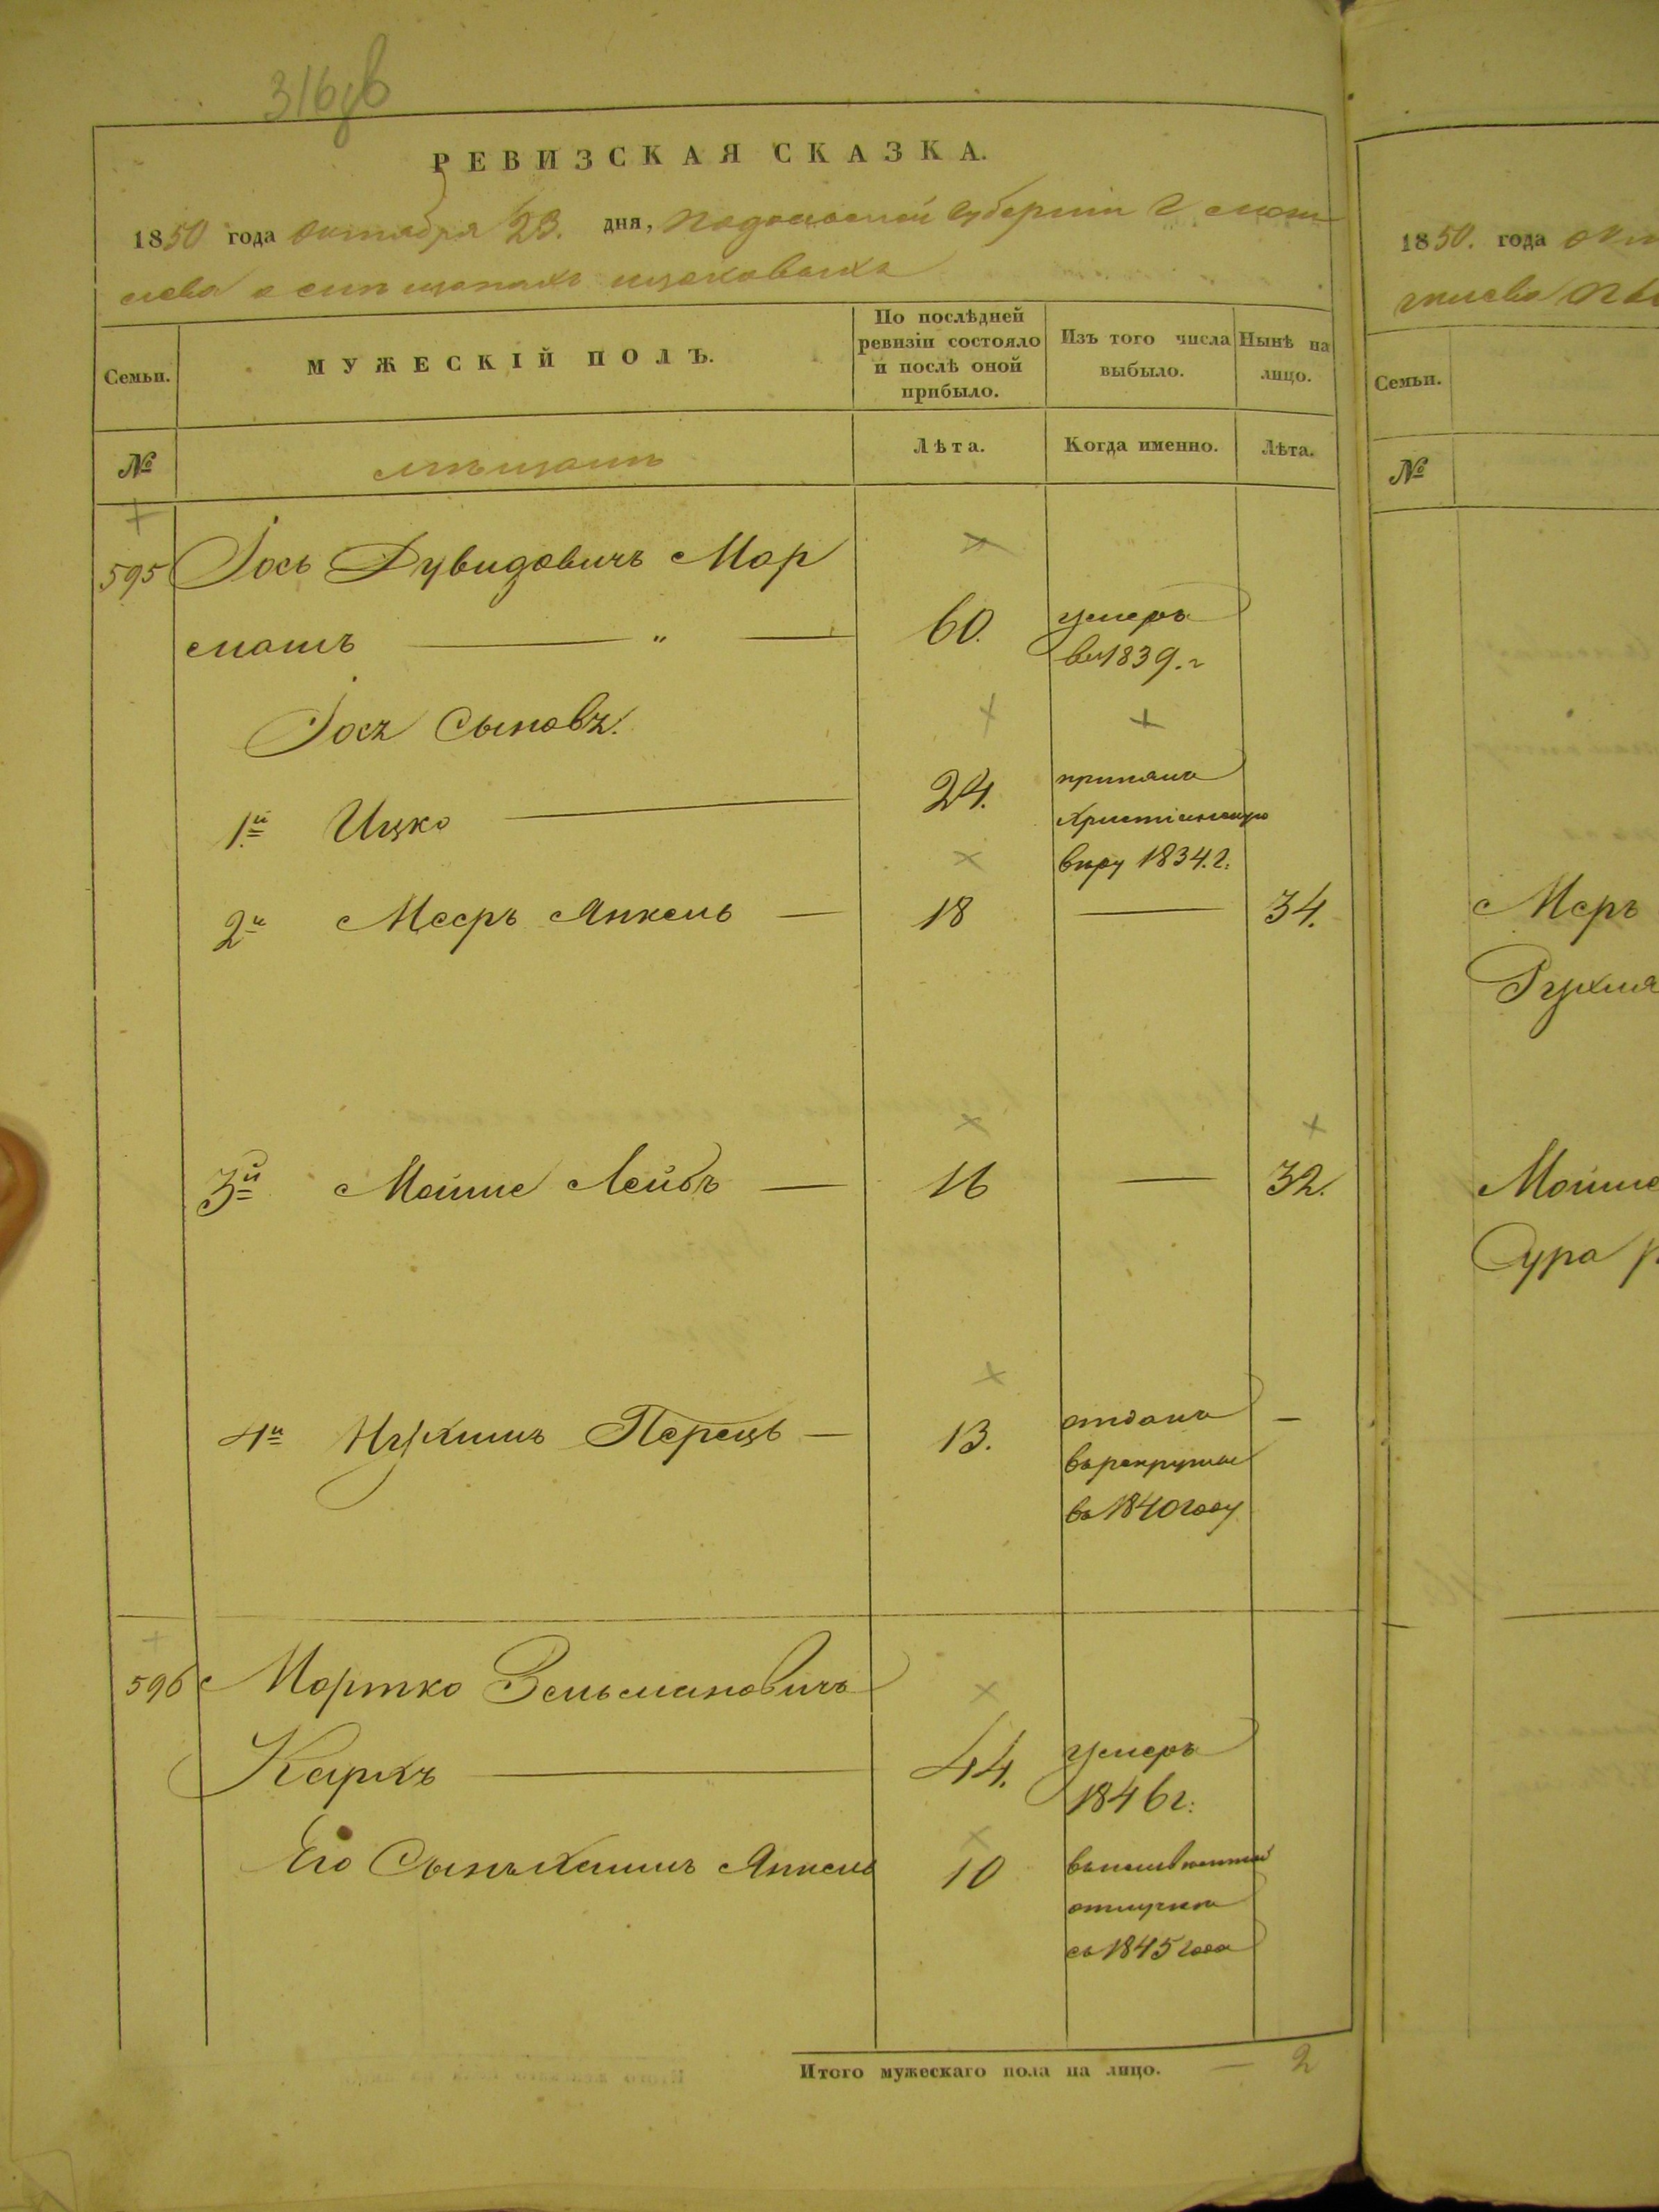 316об
РЕВИЗСКАЯ СКАЗКА.
1850 года октября 23. дня, Подольской Губернии г
о мещанахъ
Семьи.
МУЖЕСКІЙ ПОЛЪ.
По послѣдней ревизіи состояло и послѣ оной прибыло.
Изъ того числа выбыло.
Нынѣ на лицо.
№
мещанъ
Лѣта.
Когда именно.
Лѣта.
595 Іось Дувидовичъ Мор
60. умеръ
в 1839. г
Іося Сыновъя.
1й Ицко 24. принялъ
Христіянскую
веру 1834. г.
2й Мееръ Янкель — 18 — 34.
3й Мойше Лейбъ — 16 — 32.
4й Нухимъ Перець — 13. отданъ —
въ рекруты
въ 1840 году
596 Мортко Зельмановичъ
44. умеръ
1846 г.
Его Сынъ Хаимъ Янкель 10
отлучки
съ 1845 года
Итого мужескаго пола на лицо. — 2
1850. года
Семьи.
№
Меръ
Рухля
Мойше
Сура